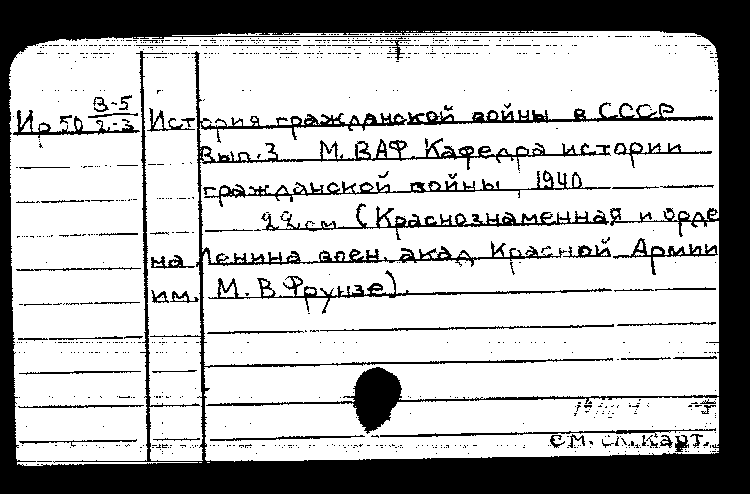 Ир 50 В-5/2-3 История гражданской войны в СССР
Вып. 3 М. ВАФ. Кафедра истории
гражданской войны, 1940
22 см (Краснознаменная и орде
на Ленина воен. акад Красной Армии
им. М. В. Фрунзе).
см. сл. карт.